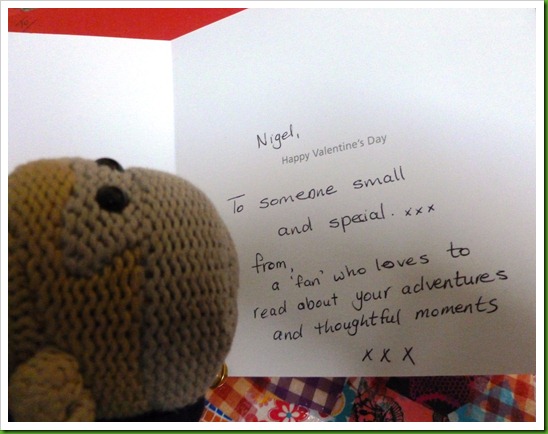 Nigel,
Happy Valentine's Day
To someone small
and special. xxx
from,
a 'fan' who loves to
read about your adventures
and thoughtful moments
x x x